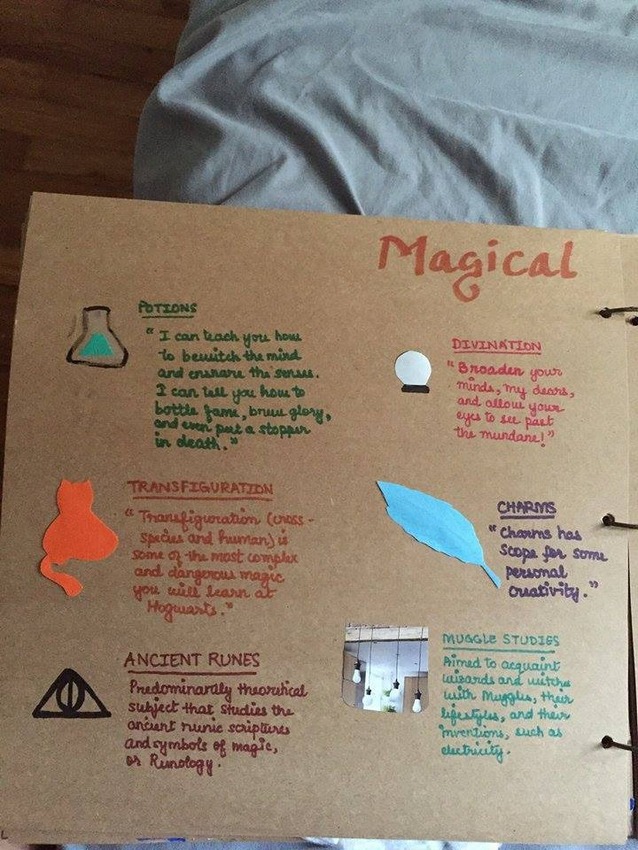 Magical
POTIONS
"I can teach you how
to bewitch the mind
and ensnare the senses.
I can tell you how to
bottle fame, brew glory,
and even put a stopper
in death."
DIVINATION
"Broaden your
minds, my dears,
and allow your
eyes to see past
the mundane!"
TRANSFIGURATION
"Transfiguration (cross-
species and human) is
some of the most complex
and dangerous magic
you will learn at
Hogwarts."
CHARMS
"Charms has
scope for some
personal
creativity."
ANCIENT RUNES
Predominantly theoretical
subject that studies the
ancient runic scriptures
and symbols of magic,
or Runology.
MUGGLE STUDIES
Aimed to acquaint
wizards and witches
with Muggles, their
lifestyles, and their
inventions, such as
electricity.